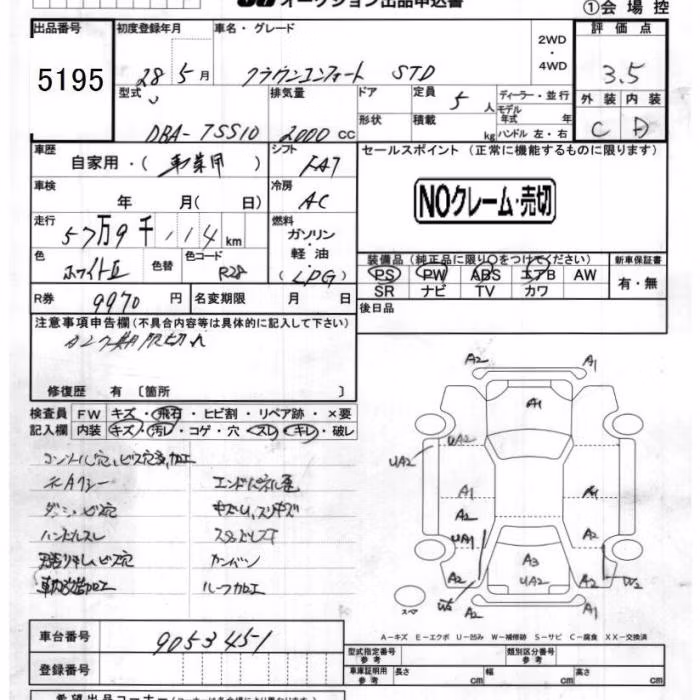 オークション出品申込書
①会場控
出品番号 初度登録年月 車名・グレード 評価点
5195 28年5月 クラウンコンフォート STD 2WD・4WD 3.5
型式 排気量 ドア 定員 5人 ディーラー・並行 外装 内装
モデル年式 年
DBA-TSS10 2000cc 形状 積載 kg ハンドル 左・右 C D
車歴 自家用・(事業用) シフト FAT セールスポイント (正常に機能するものに限ります)
車検 年 月( 日) 冷房 AC
NOクレーム・売切
走行 57万9千114km 燃料 ガソリン・軽油(LPG)
色 ホワイトII 色替 色コード R28
装備品 (純正品に限り○をつけてください) 新車保証書
PS PW ABS エアB AW 有・無
SR ナビ TV カワ
R券 9970円 名変期限 月 日 後日品
注意事項申告欄(不具合内容等は具体的に記入して下さい)
タンク期限切れ
修復歴 有〔箇所 〕
検査員記入欄 FW キズ・飛石・ヒビ割・リペア跡・×要
内装 キズ・汚レ・コゲ・穴・スレ・キレ・破レ
ダッシュビス穴
ハンドルスレ
ルーフ加工
A2 A1
A1
UA2 UA2
A1 A1
A2
UA1 A2
A3
UA2
A2 A2 W2
スペア A2 A1
A-キズ E-エクボ U-凹み W-補修跡 S-サビ C-腐食 XX-交換済
車台番号 9053451
型式指定番号 参考 類別区分番号 参考
登録番号 車庫証明用 参考 長さ cm 幅 cm 高さ cm
希望出品コーナー